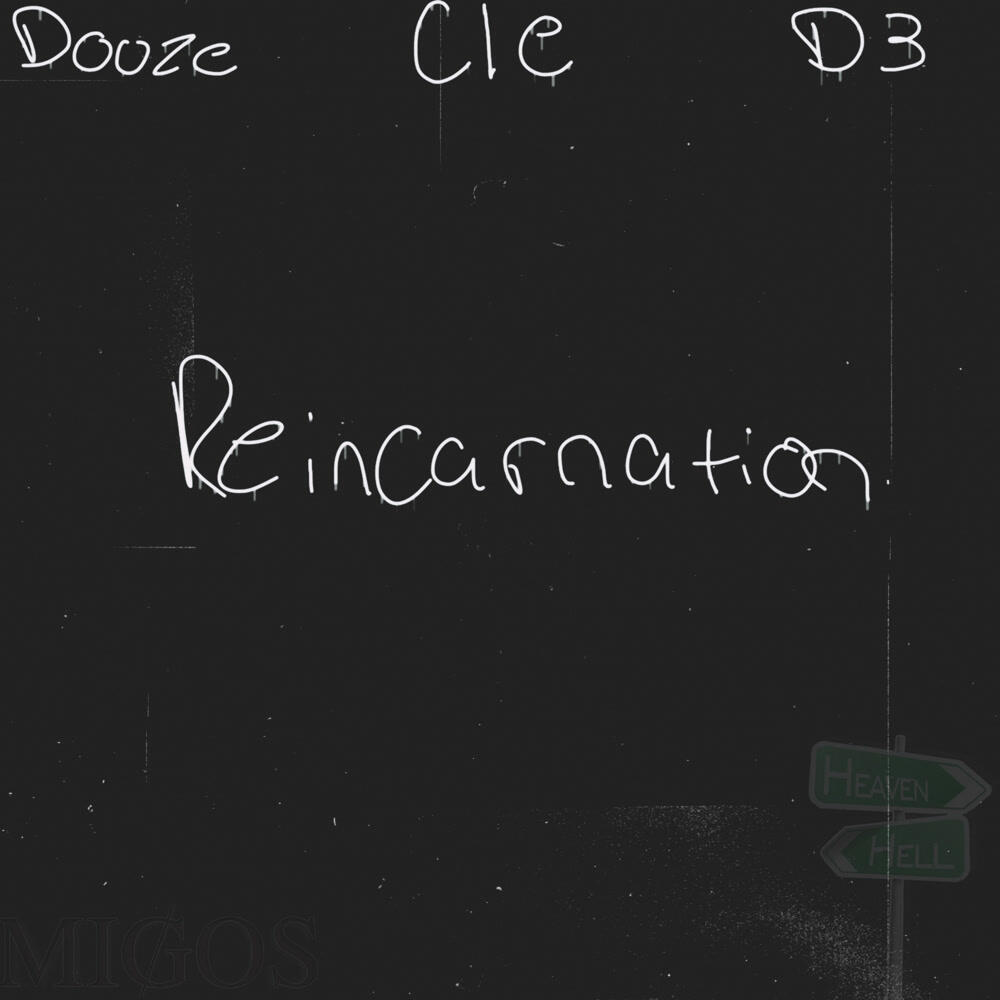 Douze Cle D3
Reincarnation
HEAVEN
HELL
MIGOS